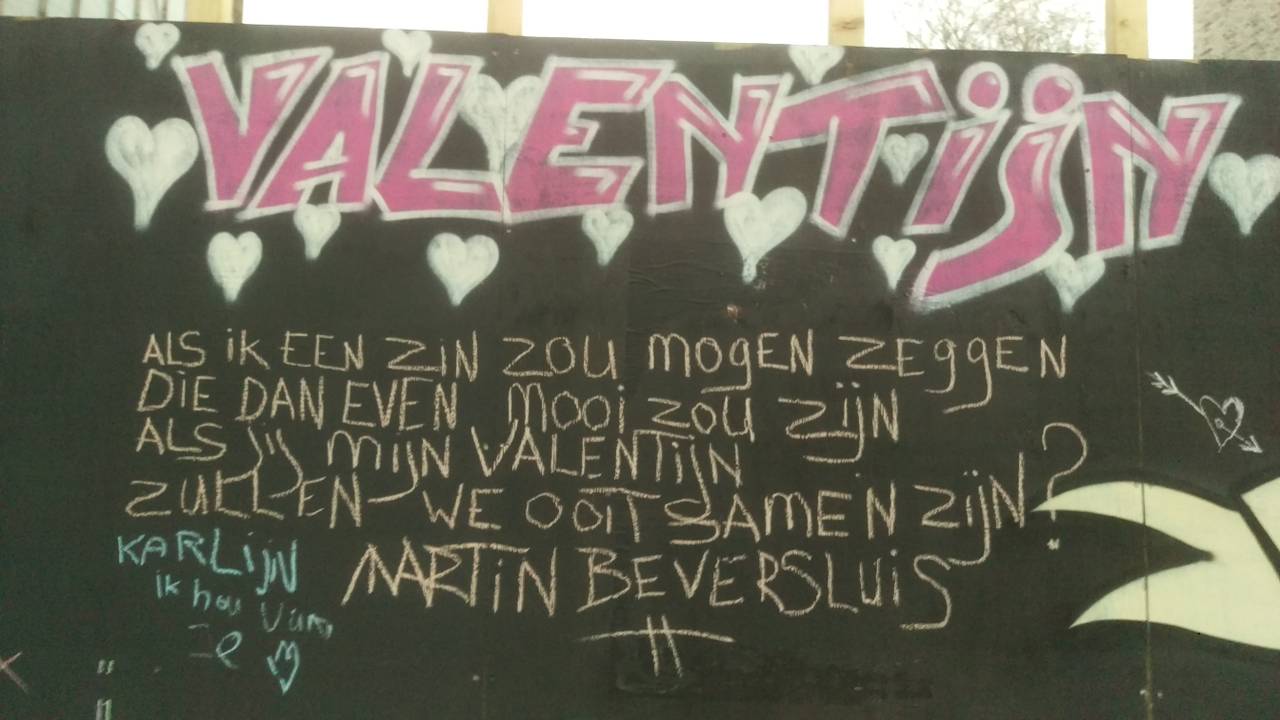 VALENTijN
ALS iK EEN ZiN ZOU mogEN ZEggEN
DiE DAN EVEN Mooi ZOU ZijN
ALS jij mijN VALENTijN
ZULLEN WE OOIT SAMEN ZijN?
MARTiN BEVERSLUiS
KARLijN
ik hou Van
Je